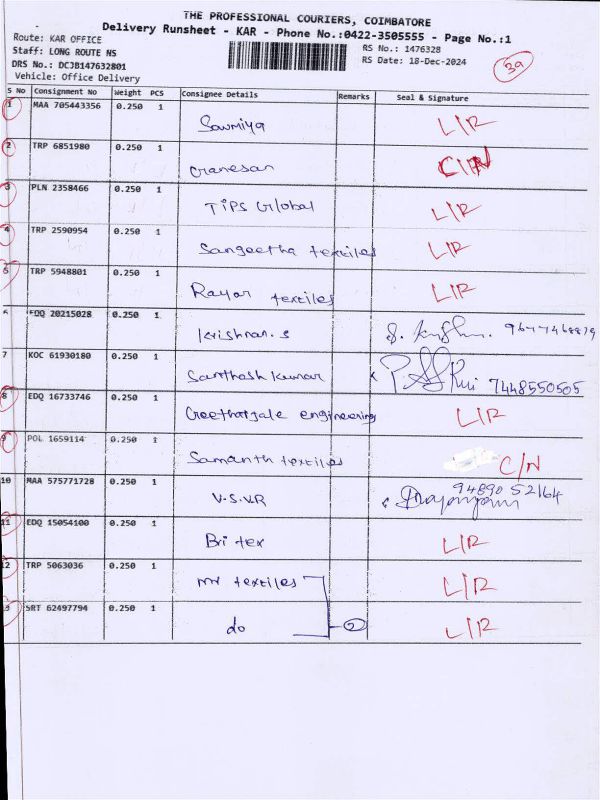 THE PROFESSIONAL COURIERS, COIMBATORE
Delivery Runsheet - KAR - Phone No.:0422-3505555 - Page No.:1
Route: KAR OFFICE
Staff: LONG ROUTE NS
DRS No.: DCJB147632801
Vehicle: Office Delivery
RS No.: 1476328
RS Date: 18-Dec-2024
39
S No Consignment No Weight PCS Consignee Details Remarks Seal & Signature
1 MAA 705443356 0.250 1 Sowmiya L/R
2 TRP 6851980 0.250 1 Ganesan C/N
3 PLN 2358466 0.250 1 TIPS Global L/R
4 TRP 2590954 0.250 1 Sangeetha textiles L/R
5 TRP 5948801 0.250 1 Rayar textiles L/R
6 EDQ 20215028 0.250 1 Krishnan. S
7 KOC 61930180 0.250 1 Santhosh Kumar 7448550505
8 EDQ 16733746 0.250 1 Geethanjale engineering L/R
9 POL 1659114 0.250 1 Samanth textiles C/N
10 MAA 575771728 0.250 1 V.S.V.R 94890 52164
11 EDQ 15054100 0.250 1 Bri tex L/R
12 TRP 5063036 0.250 1 textiles L/R
13 SRT 62497794 0.250 1 do 2 L/R